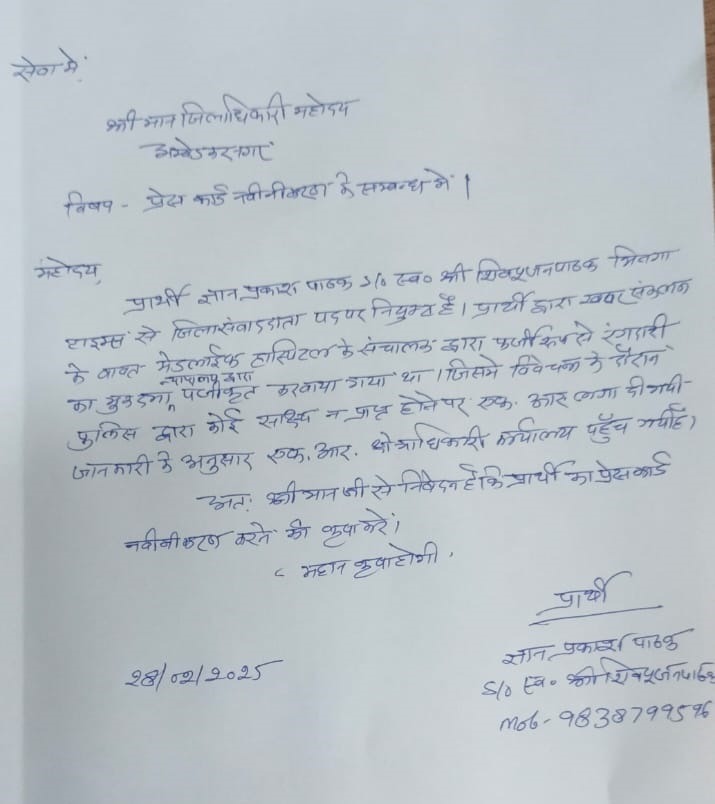 सेवा में,
श्री मान जिलाधिकारी महोदय
अम्बेडकरनगर
विषय - प्रेस कार्ड नवीनीकरण के सम्बन्ध में।
महोदय,
प्रार्थी ज्ञान प्रकाश पाठक S/o स्व० श्री शिवपूजन पाठक भिनगा
टाइम्स से जिला संवाददाता पद पर नियुक्त है। प्रार्थी द्वारा खबर संकलन
के बावत मेडलाईफ हास्पिटल के संचालक द्वारा फर्जी रूप से रंगदारी
का मुकदमा न्यायालय द्वारा पंजीकृत करवाया गया था। जिसमे विवेचना के दौरान
पुलिस द्वारा कोई साक्ष्य न प्राप्त होने पर एफ. आर लगा दी गयी
जानकारी के अनुसार एफ. आर. श्री कार्यालय पहुँच गयी है।
अतः श्री मान जी से निवेदन है कि प्रार्थी का प्रेस कार्ड
नवीनीकरण करने की कृपा करें।
महान कृपा होगी.
प्रार्थी
ज्ञान प्रकाश पाठक
S/o स्व० श्री शिवपूजन पाठक
28/02/2025
Mob - 9838799596